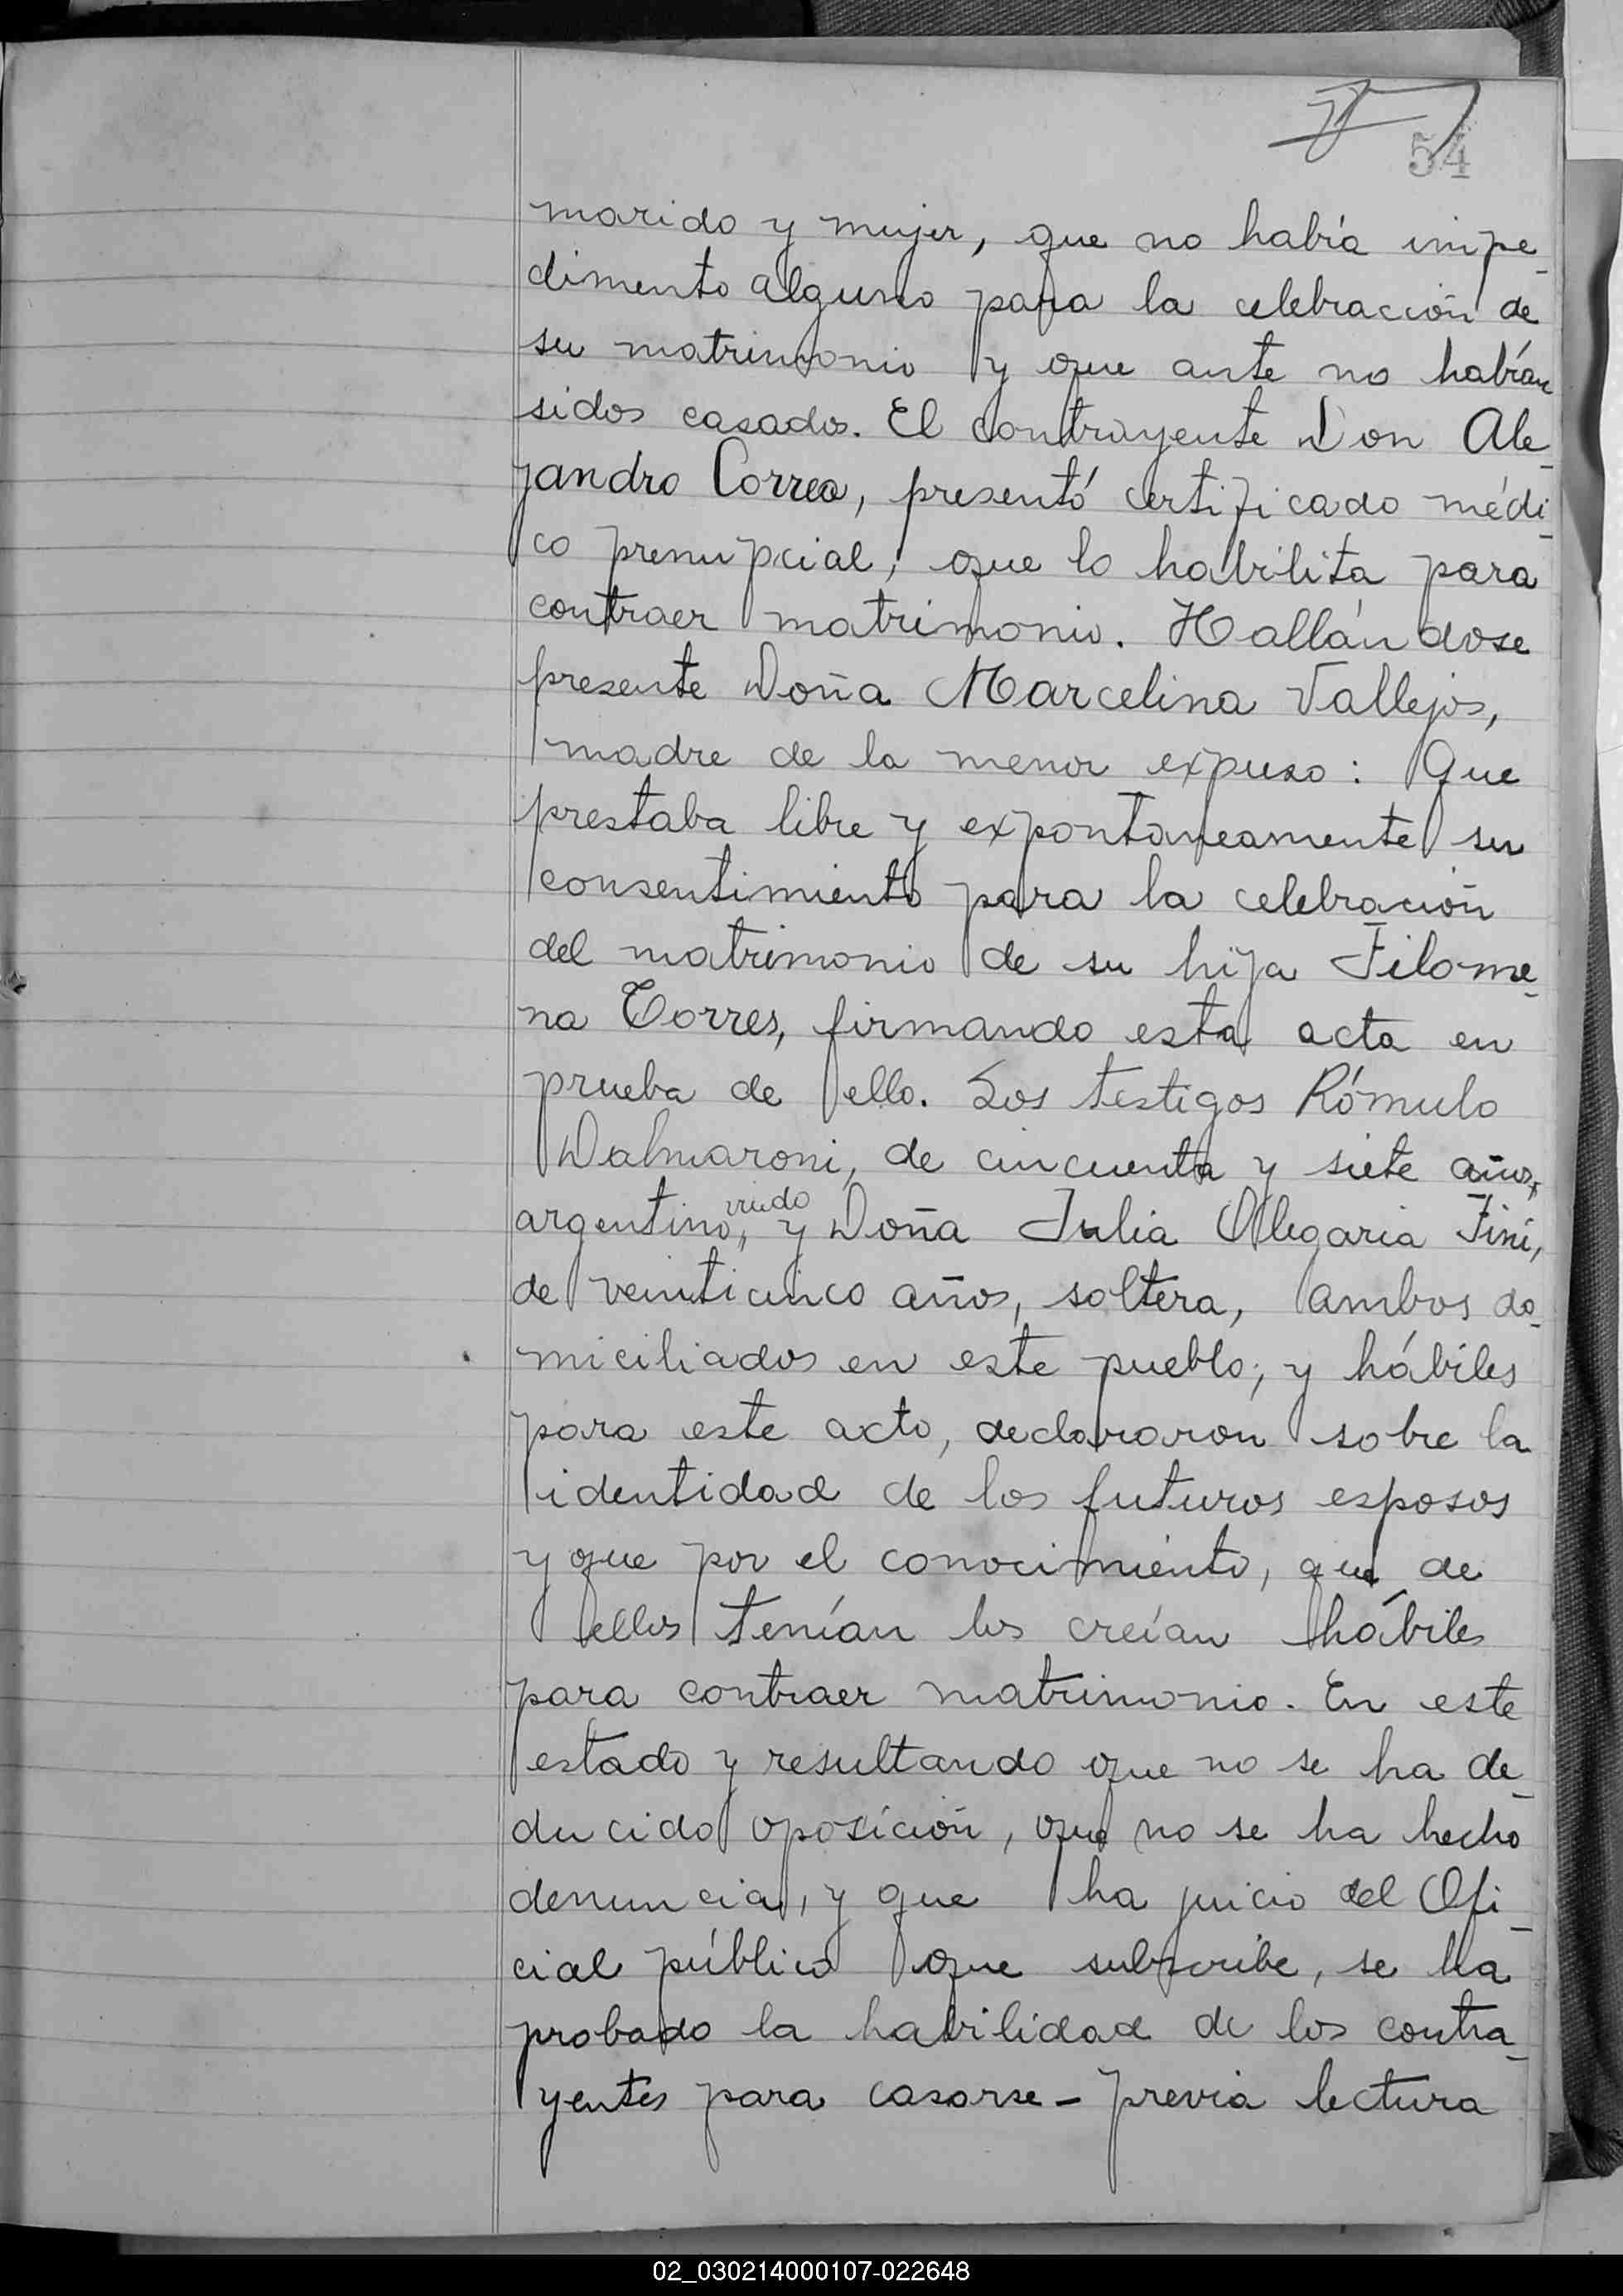 54
marido y mujer, que no había impe-
dimento alguno para la celebración de
su matrimonio y que ante no habían
sidos casados. El contrayente Don Ale-
jandro Correa, presentó certificado médi-
co prenupcial, que lo habilita para
contraer matrimonio. Hallándose
presente Doña Marcelina Vallejos,
madre de la menor expuso: Que
prestaba libre y expontaneamente su
consentimiento para la celebración
del matrimonio de su hija Filome-
na Torres, firmando esta acta en
prueba de ello. Los testigos Rómulo
Dalmaroni, de cincuenta y siete años,
viudo
argentino, y Doña Julia Olegaria Fini,
de veinticinco años, soltera, ambos do-
miciliados en este pueblo, y hábiles
para este acto, declararon sobre la
identidad de los futuros esposos
y que por el conocimiento, que de
ellos tenían los creían hábiles
para contraer matrimonio. En este
estado y resultando que no se ha de-
ducido oposición, que no se ha hecho
denuncia, y que ha juicio del Ofi-
cial público que subscribe, se ha
probado la habilidad de los contra-
yentes para casarse - previa lectura
02_030214000107-022648